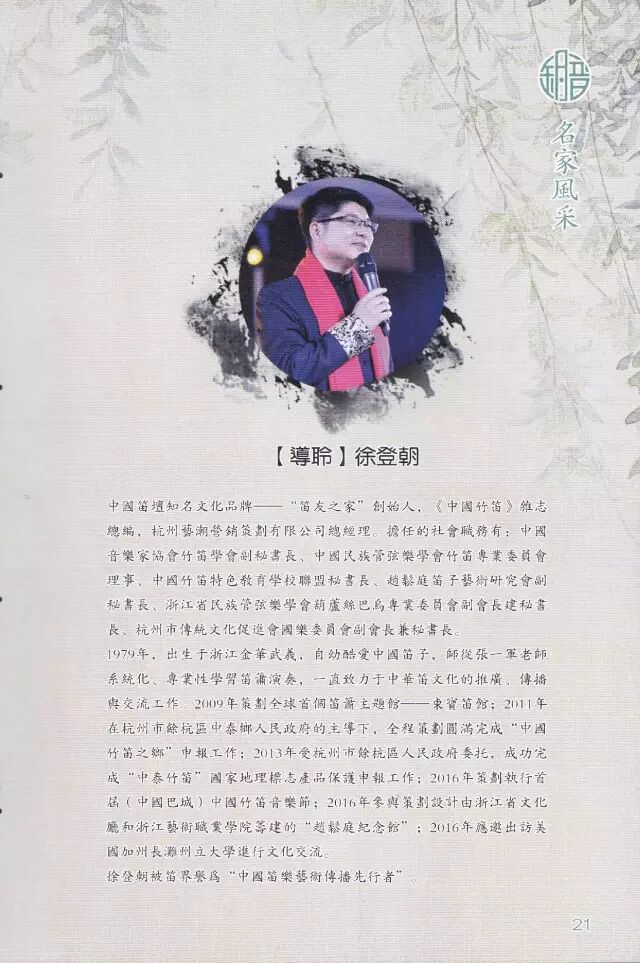 名家風采
【導聆】徐登朝
中國笛壇知名文化品牌——“笛友之家”創始人，《中國竹笛》雜志
總編，杭州藝潮營銷策劃有限公司總經理。擔任的社會職務有：中國
音樂家協會竹笛學會副秘書長、中國民族管弦樂學會竹笛專業委員會
理事、中國竹笛特色教育學校聯盟秘書長、趙鬆庭笛子藝術研究會副
秘書長、浙江省民族管弦樂學會葫蘆絲巴烏專業委員會副會長建秘書
長、杭州市傳統文化促進會國樂委員會副會長兼秘書長。
1979年，出生于浙江金華武義，自幼酷愛中國笛子，師從張一軍老師
系統化、專業性學習笛簫演奏，一直致力于中華笛文化的推廣、傳播
與交流工作。2009年策劃全球首個笛簫主題館——東寶笛館；2011年
在杭州市餘杭區中泰鄉人民政府的主導下，全程策劃圓滿完成“中國
竹笛之鄉”申報工作；2013年受杭州市餘杭區人民政府委托，成功完
成“中泰竹笛”國家地理標志產品保護申報工作；2016年策劃執行首
屆（中國巴城）中國竹笛音樂節；2016年參與策劃設計由浙江省文化
廳和浙江藝術職業學院籌建的“趙鬆庭紀念館”；2016年應邀出訪美
國加州長灘州立大學進行文化交流。
徐登朝被笛界譽爲“中國笛樂藝術傳播先行者”。
21